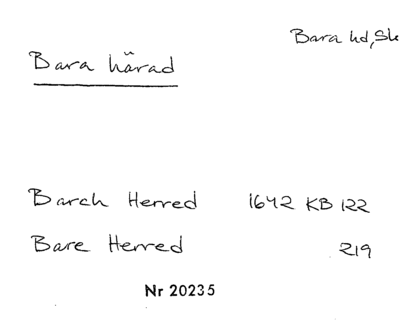 Bara hd, Sk
Bara härad
Barch Herred 1642 KB 122
Bare Herred 219
Nr 20235